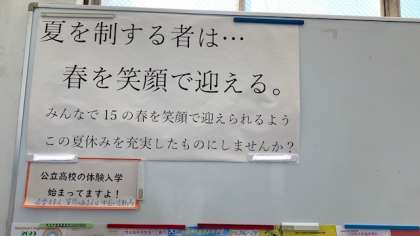 夏を制する者は…
春を笑顔で迎える。
みんなで15の春を笑顔で迎えられるよう
この夏休みを充実したものにしませんか？
公立高校の体験入学
始まってますよ！